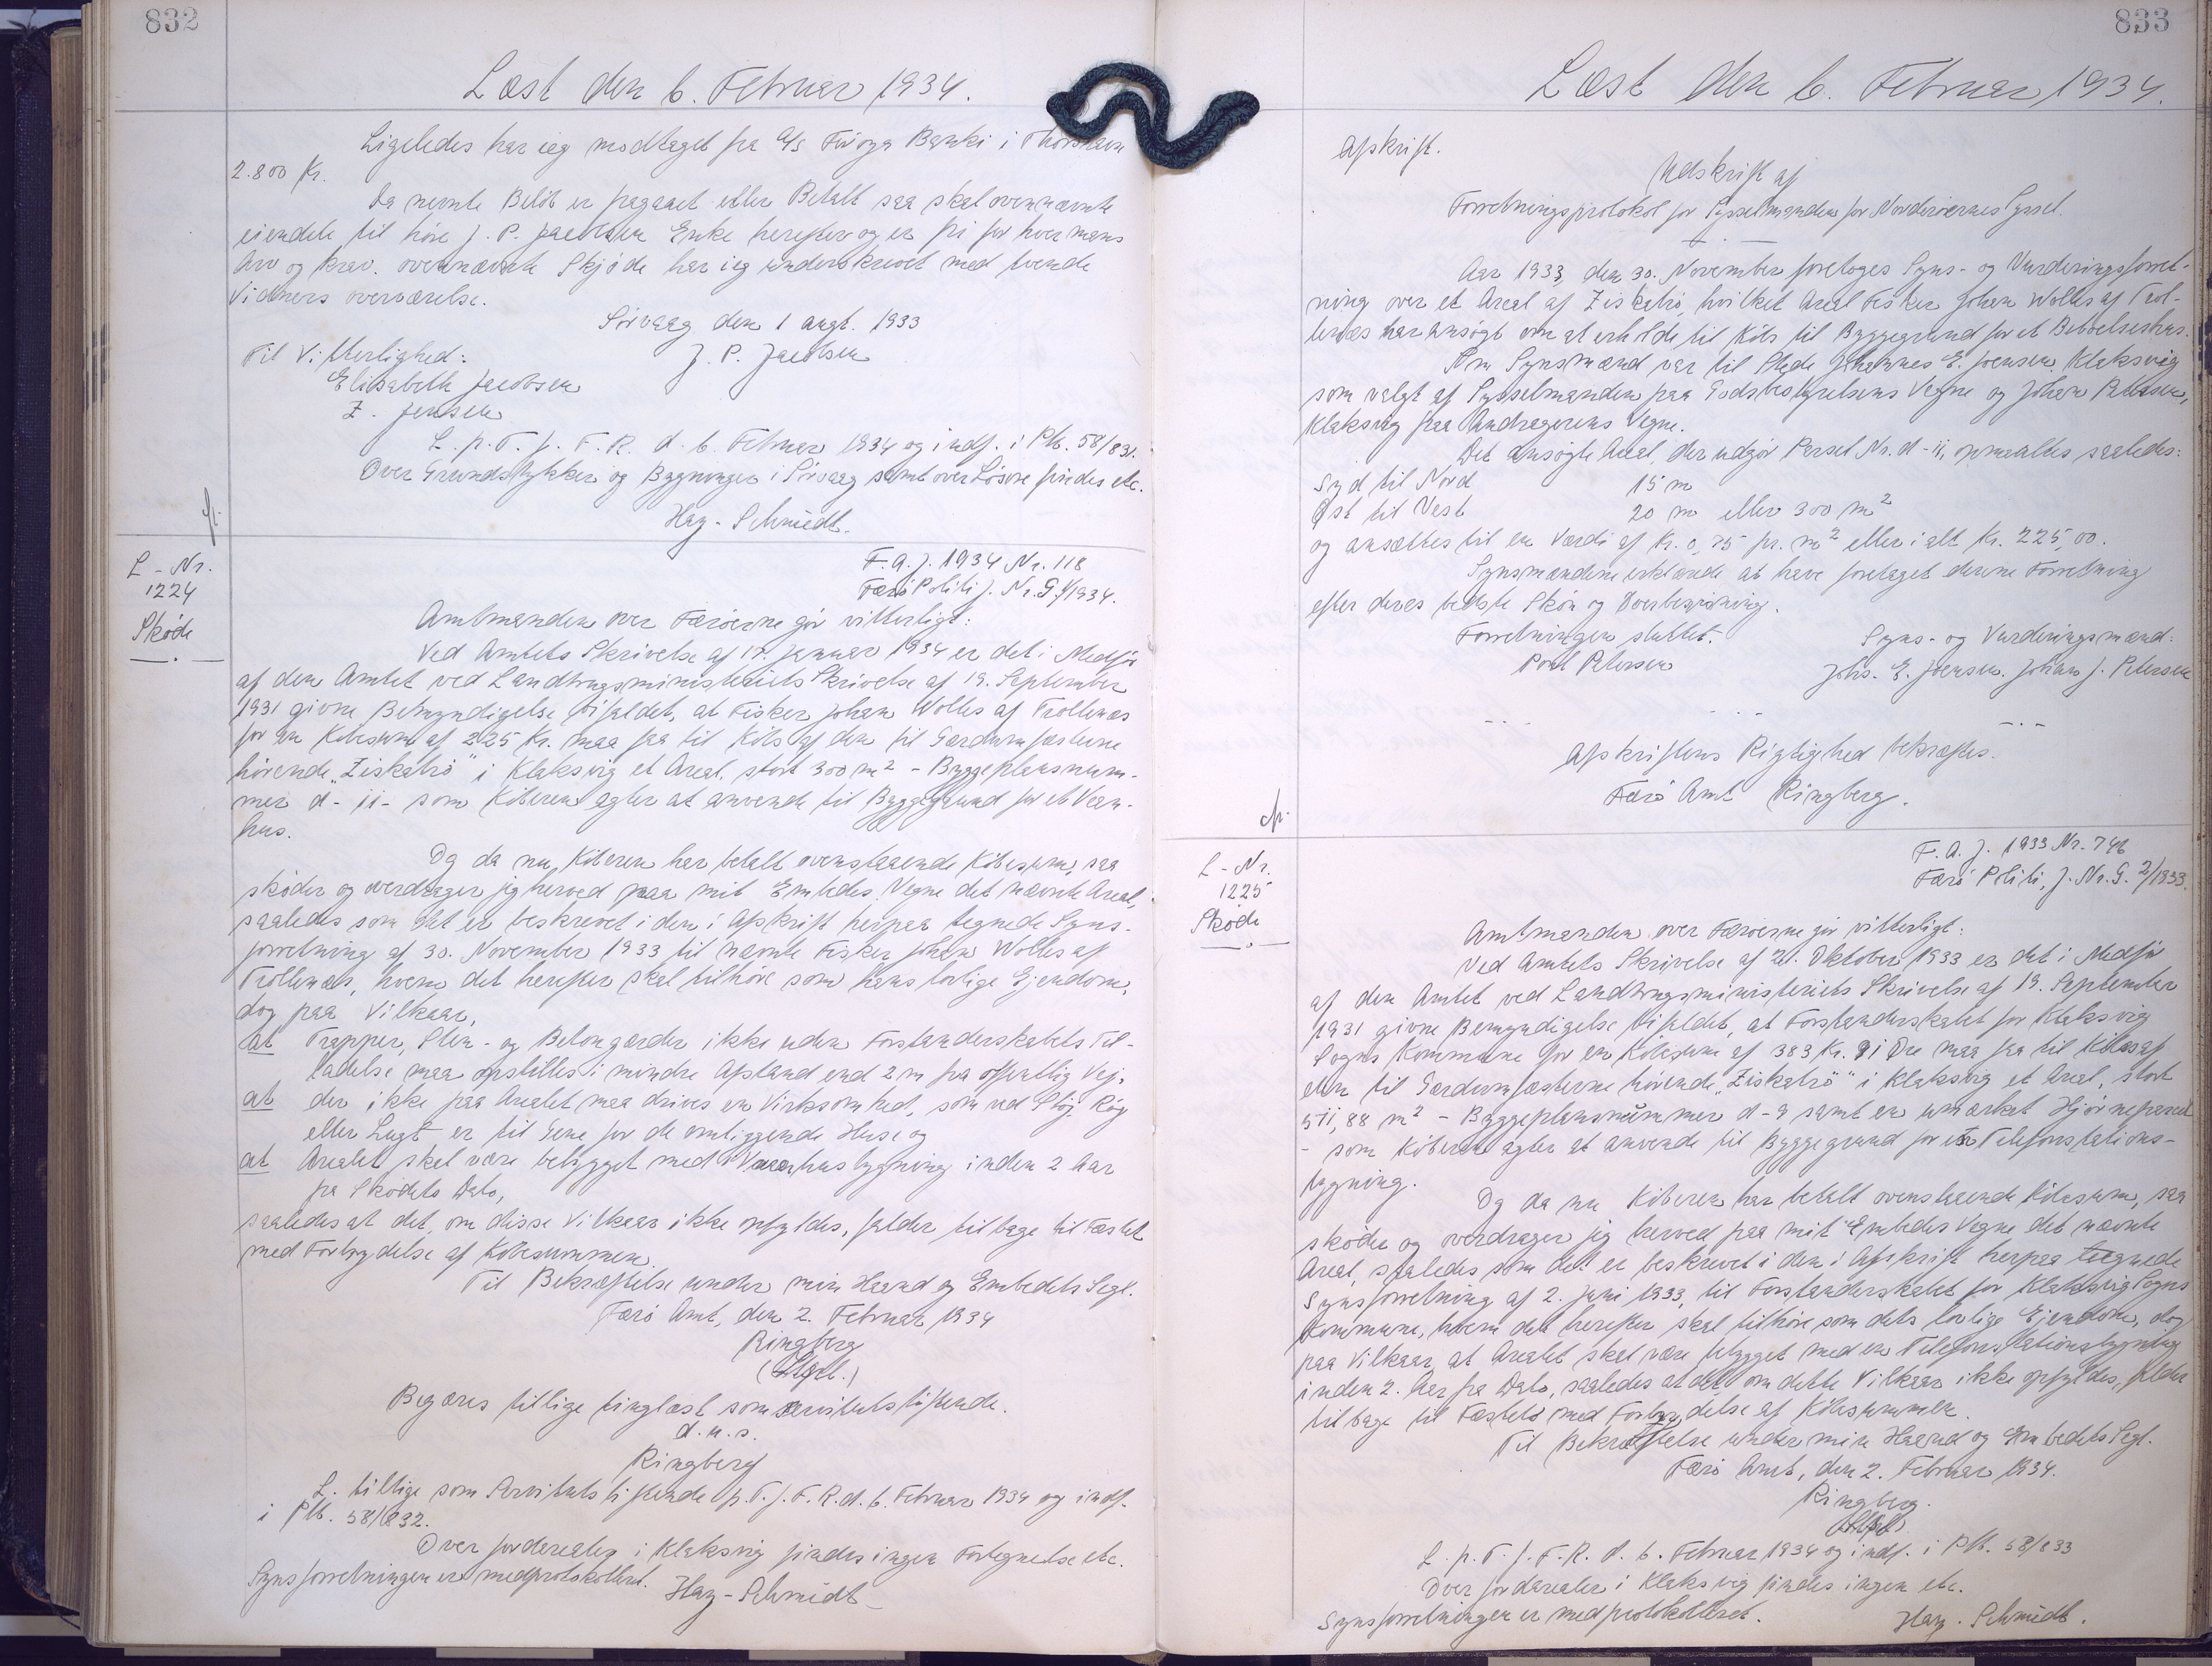 832
Læst den 6. Februar 1934.
Ligeledes har ieg modtaget fra A/s Föroya Banki i Thorshavn
2.800 Kr.
Da nevnte Belöb er pagaaet eller Betalt saa skal ovennævnte
eiendele til höre J. P. Jacobsen Enke herefter og er fri for hver mans
Arv og Krav. ovennævnte Skjöde har ieg underskrevet med tvende
Vidners overværelse.
Sörvaag den 1 augt. 1933
Til Vitterlighed: J. P. Jacobsen
Elisabeth Jacobsen
Z. Jensen
L. p. T. f. F. R. d. 6. Februar 1934 og indf. i Ptk. 58/831.
Over Grundstykker og Bygninger i Sörvaag samt over Lösöre findes etc.
Hay-Schmidt.
L-Nr.
1224
Sköde
F. A. J. 1934 Nr. 118
Færö Politi J. Nr. G. 1/1934.
Amtmanden over Færöerne gör vitterligt:
Ved Amtets Skrivelse af 17. Januar 1934 er det i Medför
af den Amtet ved Landbrugsministeriets Skrivelse af 19. September
1931 givne Bemyndigelse bifaldet, at Fisker Johan Wolles af Trollenæs
for en Köbesum af 225 Kr. maa faa til Köbs af den til Gærdumfæsterne
hörende "Ziskatrö" i Klaksvig et Areal, stort 300 m² - Byggeplansnum-
mer d-11- som Köberen agter at anvende til Byggegrund for et Vaan-
hus.
Og da nu Köberen har betalt ovenstaaende Köbesum, saa
sköder og overdrager jeg herved paa mit Embedes Vegne det nævnte Areal,
saaledes som det er beskrevet i den i Afskrift herpaa tegnede Syns-
forretning af 30. November 1933 til nævnte Fisker Johan Wolles af
Trollenæs, hvem det herefter skal tilhöre som hans lovlige Ejendom,
dog paa Vilkaar,
at Trapper, Sten- og Betongærder ikke uden Forstanderskabets Til-
ladelse maa opstilles i mindre Afstand end 2 m fra offentlig Vej,
at der ikke paa Arealet maa drives en Virksomhed, som ved Stöj, Rög
eller Lugt er til Gene for de omliggende Huse og
at Arealet skal være bebygget med Vaanhusbygning inden 2 Aar
fra Sködets Dato,
saaledes at det, om disse Vilkaar ikke opfyldes, falder tilbage til Fæstet
med Fortrydelse af Köbesummen.
Til Bekræftelse under min Haand og Embedets Segl.
Færö Amt, den 2. Februar 1934
Ringberg
(Segl.)
Begæres tillige tinglæst som servitutstiftende.
d. u. s.
Ringberg
L. tillige som Servitutstiftende p. T. f. F. R. d. 6. Februar 1934 og indf.
i Ptk. 58/832.
Over Jordarealer i Klaksvig findes ingen Fortegnelse etc.
Synsforretningen er medprotokolleret. Hay-Schmidt
833
Læst den 6. Februar 1934.
Afskrift.
Udskrift af
Forretningsprotokol for Sysselmanden for Norderöernes Syssel.
Aar 1933, den 30. November foretoges Syns- og Vurderingsforret-
ning over et Areal af Ziskatrö, hvilket Areal Fisker Johan Wolles af Trol-
lenæs har ansögt om at erholde til Köbs til Byggegrund for et Beboelseshus.
Som Synsmænd var til Stede Johannes E. Joensen, Klaksvig
som valgt af Sysselmanden paa Godsbestyrelsens Vegne og Johan Petersen,
Klaksvig paa Andragerens Vegne.
Det ansögte Areal, der udgör Parsel Nr. d-11, opmaaltes saaledes:
Syd til Nord 15 m
Öst til Vest 20 m eller 300 m²
og ansættes til en Værdi af Kr. 0,75 pr. m² eller i alt Kr. 225,00.
Synsmændene erklærede at have foretaget denne Forretning
efter deres bedste Skön og Overbevisning.
Forretningen sluttet. Syns- og Vurderingsmænd:
Poul Petersen Johs. E. Joensen. Johan J. Petersen
Afskriftens Rigtighed bekræftes.
Færö Amt Ringberg.
L-Nr.
1225
Sköde
F. A. J. 1933 Nr. 746
Færö Politi, J. Nr. G. 2/1933.
Amtmanden over Færöerne gör vitterligt:
Ved Amtets Skrivelse af 21. Oktober 1933 er det i Medför
af den Amtet ved Landbrugsministeriets Skrivelse af 19. September
1931 givne Bemyndigelse bifaldet, at Forstanderskabet for Klaksvig
Sogns Kommune for en Köbesum af 383 Kr. 91 Öre maa faa til Köbs af
den til Gærdumfæsterne hörende "Ziskatrö" i Klaksvig et Areal, stort
511,88 m² - Byggeplansnummer d-9 samt en umærket Hjörneparcel
- som Köberen agter at anvende til Byggegrund for en Telefonstations-
bygning.
Og da nu Köberen har betalt ovenstaaende Köbesum, saa
sköder og overdrager jeg herved paa mit Embedes Vegne det nævnte
Areal, saaledes som det er beskrevet i den i Afskrift herpaa tegnede
Synsforretning af 2. Juni 1933, til Forstanderskabet for Klaksvig Sogns
Kommune, hvem det herefter skal tilhöre som dets lovlige Ejendom, dog
paa Vilkaar, at Arealet skal være bebygget med en Telefonstationsbygning
inden 2. Aar fra Dato, saaledes at det, om dette Vilkaar ikke opfyldes, falder
tilbage til Fæstet med Fortrydelse af Köbesummen.
Til Bekræftelse under min Haand og Embedets Segl.
Færö Amt, den 2. Februar 1934.
Ringberg.
(Segl)
L. p. T. f. F. R. d. 6. Februar 1934 og indf. i Ptk. 58/833
Over Jordarealer i Klaksvig findes ingen etc.
Synsforretningen er medprotokolleret. Hay-Schmidt.